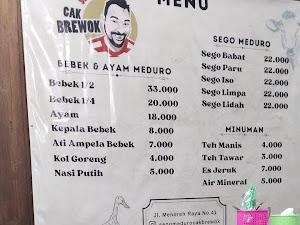 MENU
CAK
BREWOK
BEBEK & AYAM MEDURO
Bebek 1/2 33.000
Bebek 1/4 20.000
Ayam 18.000
Kepala Bebek 8.000
Ati Ampela Bebek 7.000
Kol Goreng 4.000
Nasi Putih 5.000
SEGO MEDURO
Sego Babat 22.000
Sego Paru 22.000
Sego Iso 22.000
Sego Limpa 22.000
Sego Lidah 22.000
MINUMAN
Teh Manis 4.000
Teh Tawar 3.000
Es Jeruk 7.000
Air Mineral 5.000
Jl. Menoreh Raya No.41
segomedurocakbrewok